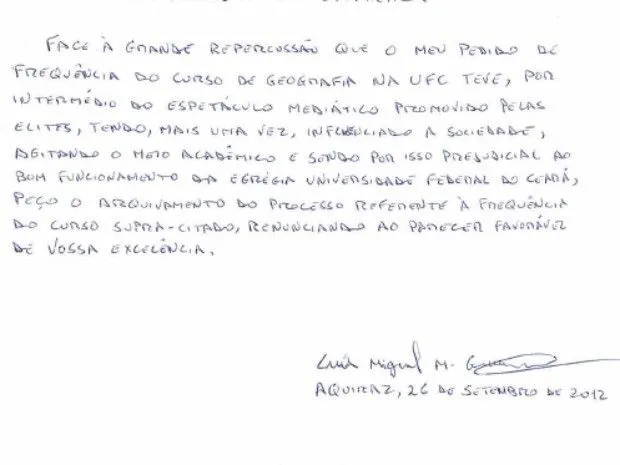 FACE À GRANDE REPERCUSSÃO QUE O MEU PEDIDO DE
FREQUÊNCIA DO CURSO DE GEOGRAFIA NA UFC TEVE, POR
INTERMÉDIO DO ESPETÁCULO MEDIÁTICO PROMOVIDO PELAS
ELITES, TENDO, MAIS UMA VEZ, INFLUENCIADO A SOCIEDADE,
AGITANDO O MEIO ACADÊMICO E SENDO POR ISSO PREJUDICIAL AO
BOM FUNCIONAMENTO DA EGRÉGIA UNIVERSIDADE FEDERAL DO CEARÁ,
PEÇO O ARQUIVAMENTO DO PROCESSO REFERENTE À FREQUÊNCIA
DO CURSO SUPRA-CITADO, RENUNCIANDO AO PARECER FAVORÁVEL
DE VOSSA EXCELÊNCIA.
Luís Miguel M.
AQUIRAZ, 26 DE SETEMBRO DE 2012